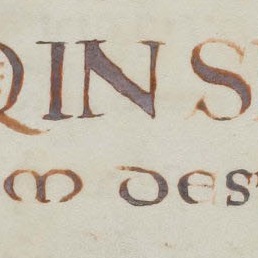 QIN S
M DES